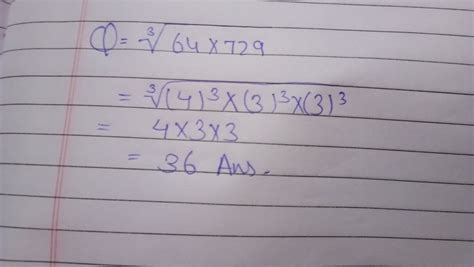 Q = ∛64×729
= ∛(4)³×(3)³×(3)³
= 4×3×3
= 36 Ans.